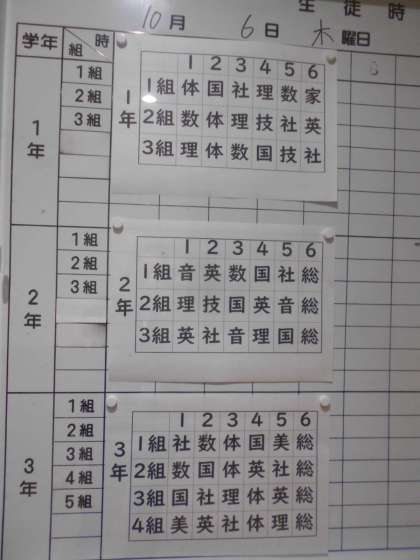 生徒時
10月 6日 木曜日
学年 組 時
1年
1組
2組
3組
1年
1 2 3 4 5 6
1組 体 国 社 理 数 家
2組 数 体 理 技 社 英
3組 理 体 数 国 技 社
2年
1組
2組
3組
2年
1 2 3 4 5 6
1組 音 英 数 国 社 総
2組 理 技 国 英 音 総
3組 英 社 音 理 国 総
3年
1組
2組
3組
4組
5組
3年
1 2 3 4 5 6
1組 社 数 体 国 美 総
2組 数 国 体 英 社 総
3組 国 社 理 体 英 総
4組 美 英 社 体 理 総